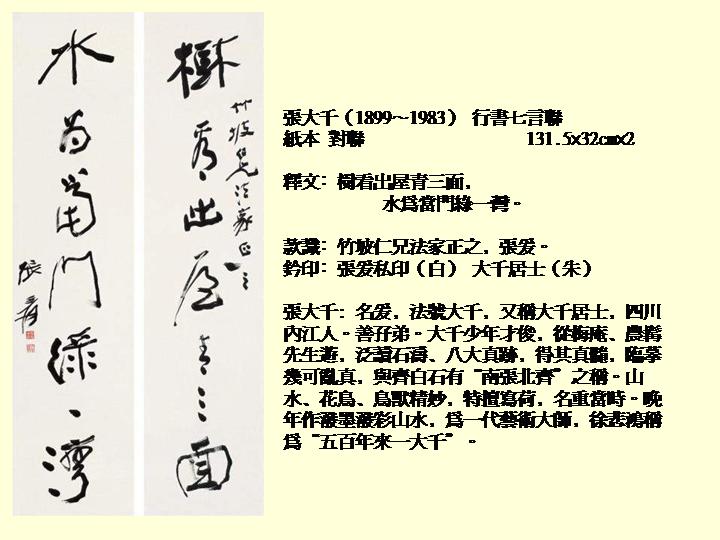 樹看出屋青三面
竹坡仁兄法家正之
水為當門綠一灣
張爰
張大千（1899～1983） 行書七言聯
紙本 對聯 131.5x32cmx2
釋文：樹看出屋青三面，
水為當門綠一灣。
款識：竹坡仁兄法家正之，張爰。
鈐印：張爰私印（白） 大千居士（朱）
張大千：名爰，法號大千，又稱大千居士，四川
內江人。善孖弟。大千少年才俊，從梅庵、農髯
先生遊，泛讀石濤、八大真跡，得其真髓，臨摹
幾可亂真，與齊白石有“南張北齊”之稱。山
水、花鳥、鳥獸精妙，特擅寫荷，名重當時。晚
年作潑墨潑彩山水，為一代藝術大師，徐悲鴻稱
為“五百年來一大千”。